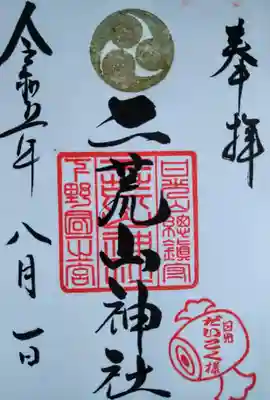 奉拝
二荒山神社
日光山總鎮守
下野國一之宮
日光
だいこく様
令和五年
八月一日